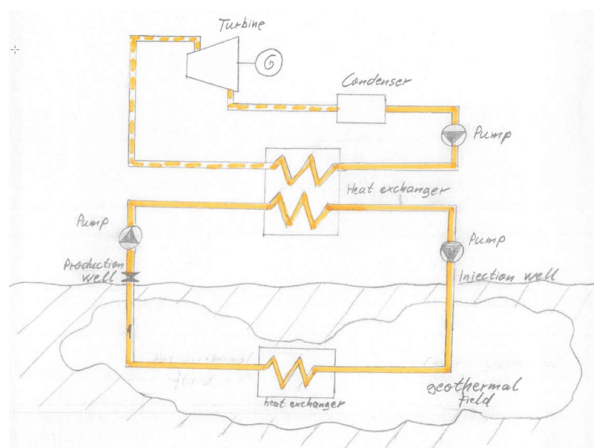 Turbine
G
Condenser
Pump
Heat exchanger
Pump
Pump
Production
well
Injection well
heat exchanger
geothermal
field